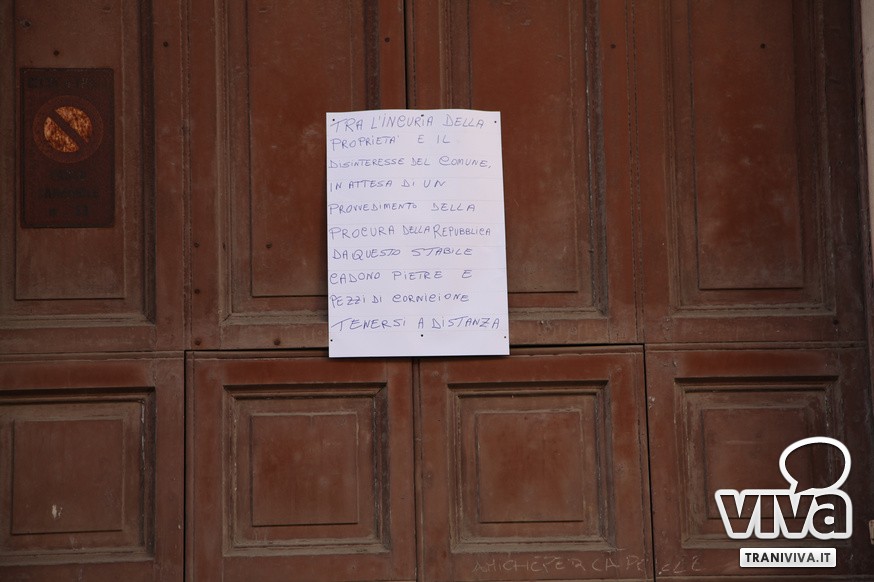 TRA L'INCURIA DELLA
PROPRIETA' E IL
DISINTERESSE DEL COMUNE,
IN ATTESA DI UN
PROVVEDIMENTO DELLA
PROCURA DELLA REPUBBLICA
DA QUESTO STABILE
CADONO PIETRE E
PEZZI DI CORNICIONE
TENERSI A DISTANZA
VIVA
TRANIVIVA.IT